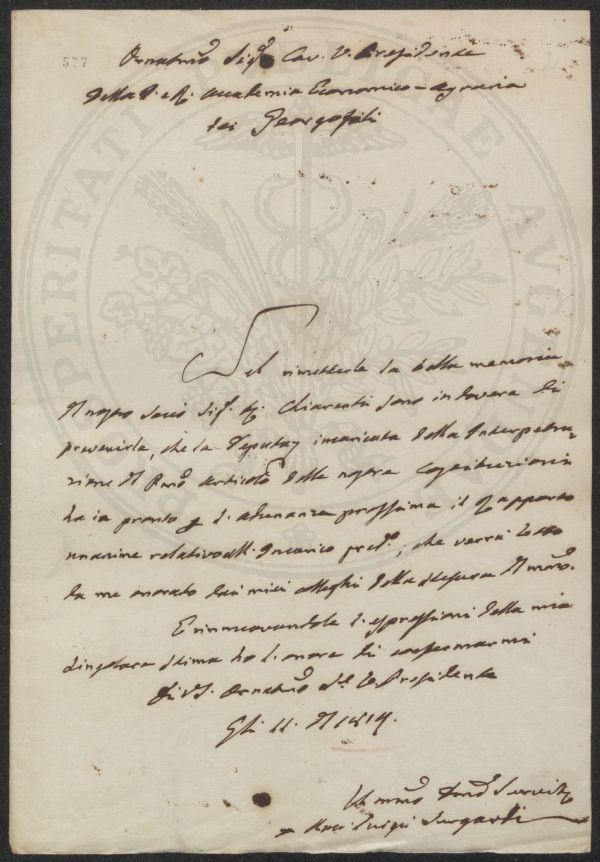 577
Ornatmo Sigr Cav. V. Presidente
della I. e R. Accademia Economico-Agraria
dei Georgofili
Nel rimetterle la bella memoria
del nostro socio Sigr Chiarenti sono in dovere di
prevenirla, che la Deputaz incaricata della Interpetra-
zione del Pmo articolo delle nostre Costituzioni
ha in pronto p l'adunanza prossima il Rapporto
unanime relativo all'Incarico predo, che verrà letto
da me onorato dai miei colleghi della stesura del medmo.
E rinnuovandole l'espressioni della mia
singolare stima ho l'onore di confermarmi
Di V.S. Ornatma Sr V. Presidente
Gli 11. del 1814.
Luigi
PROSPERITATI PUBLICAE AUGENDAE